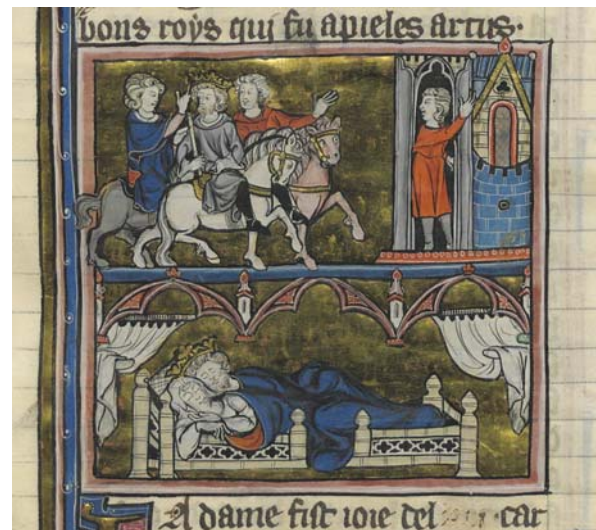 bons roys qui fu apieles artus·
A dame fist ioie del car